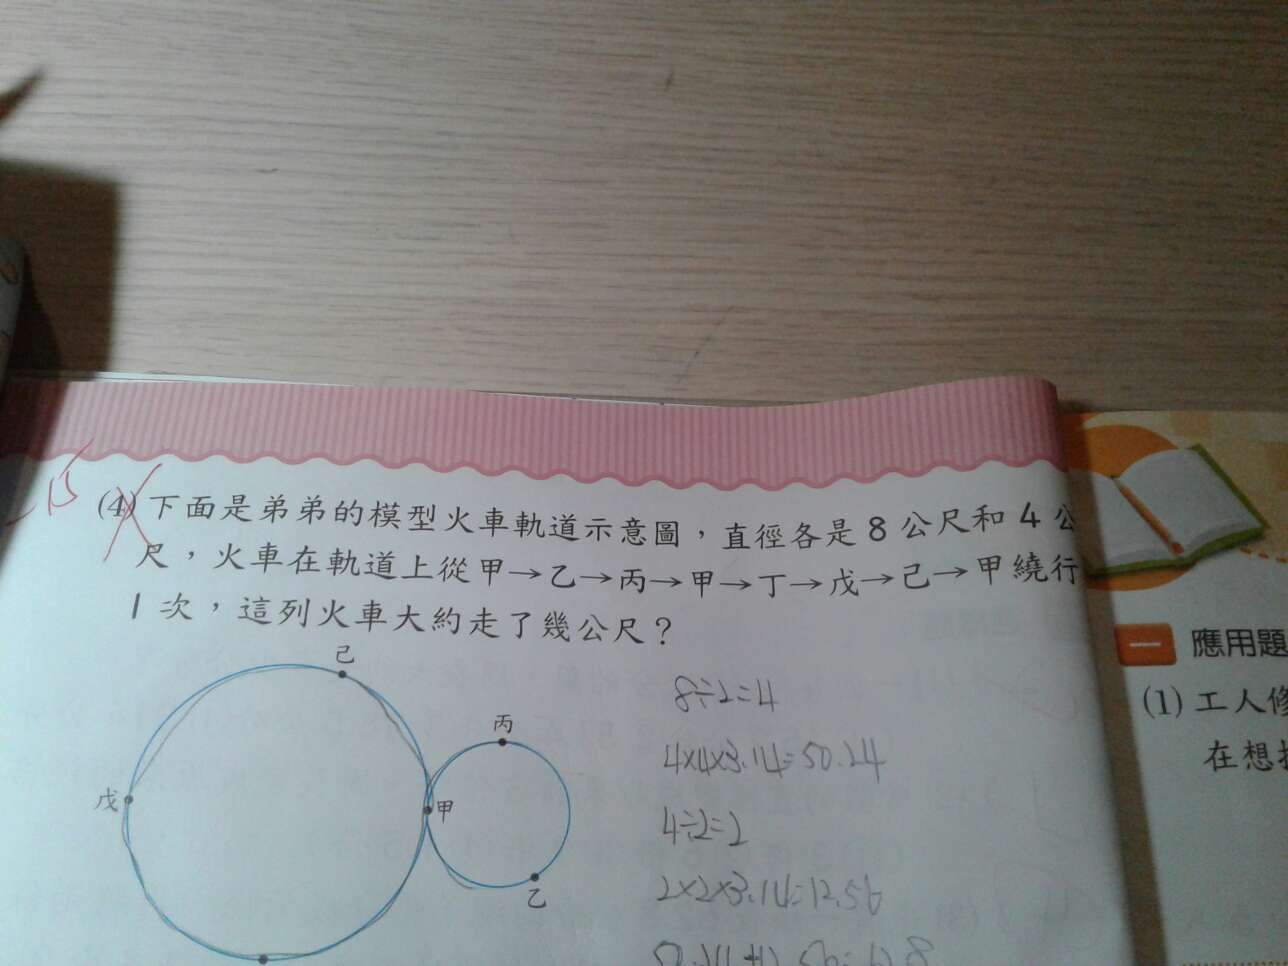 -15
(4) 下面是弟弟的模型火車軌道示意圖，直徑各是 8 公尺和 4 公
尺，火車在軌道上從甲→乙→丙→甲→丁→戊→己→甲繞行
1 次，這列火車大約走了幾公尺？
己
丙
戊
甲
乙
8÷2=4
4×4×3.14=50.24
4÷2=2
2×2×3.14=12.56
一 應用題
(1) 工人修
在想